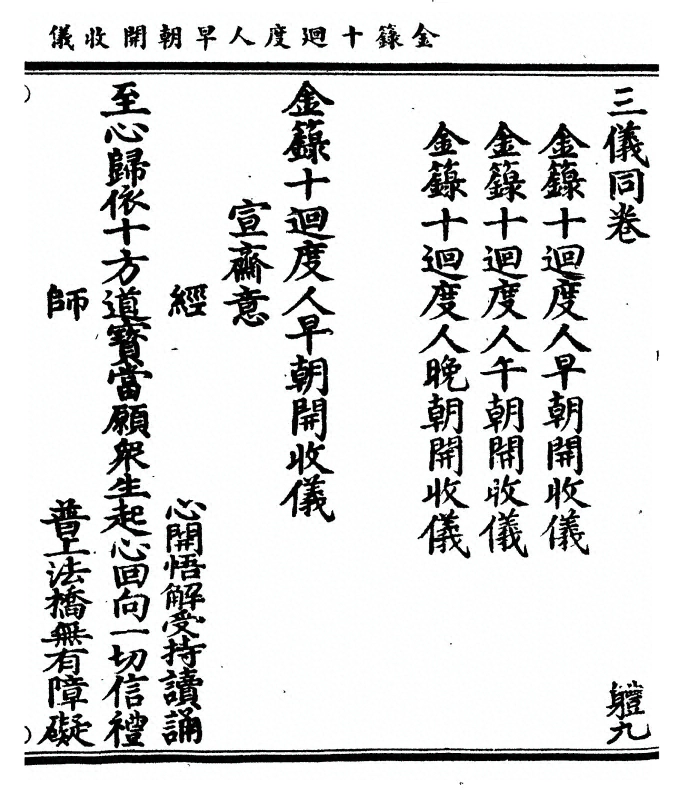 金籙十迴度人早朝開收儀
三儀同卷 軆九
金籙十迴度人早朝開收儀
金籙十迴度人午朝開收儀
金籙十迴度人晚朝開收儀
金籙十迴度人早朝開收儀
宣齋意
經 心開悟解受持讀誦
至心歸依十方道寶當願衆生起心回向一切信禮
師 普上法橋無有障礙